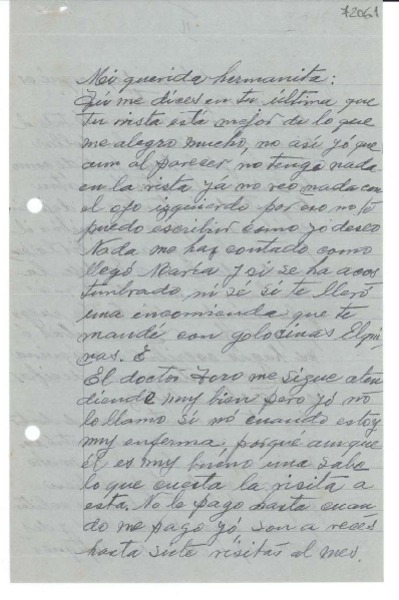 72061
Mi querida hermanita:
Tú me dices en tu última, que
tu vista está mejor de lo que
me alegro mucho, no así yó que
aun al pareser no tengo nada
en la vista yá no veo nada con
el ojo izquierdo por eso no te
puedo escribir como yo deseo
Nada me haz contado como
llegó María y si se ha acos
tumbrado ni sé si te llevó
una encomienda que te
mandé con golocinas
El doctor Toro me sigue aten
diende muy bien pero yó no
lo llamo si nó cuando estoy
muy enferma, porque aunque
él es muy bueno una sabe
lo que cuesta la visita a
esta. No le pago hasta cuan
do me pago yó son a veces
hasta siete visitas al mes.